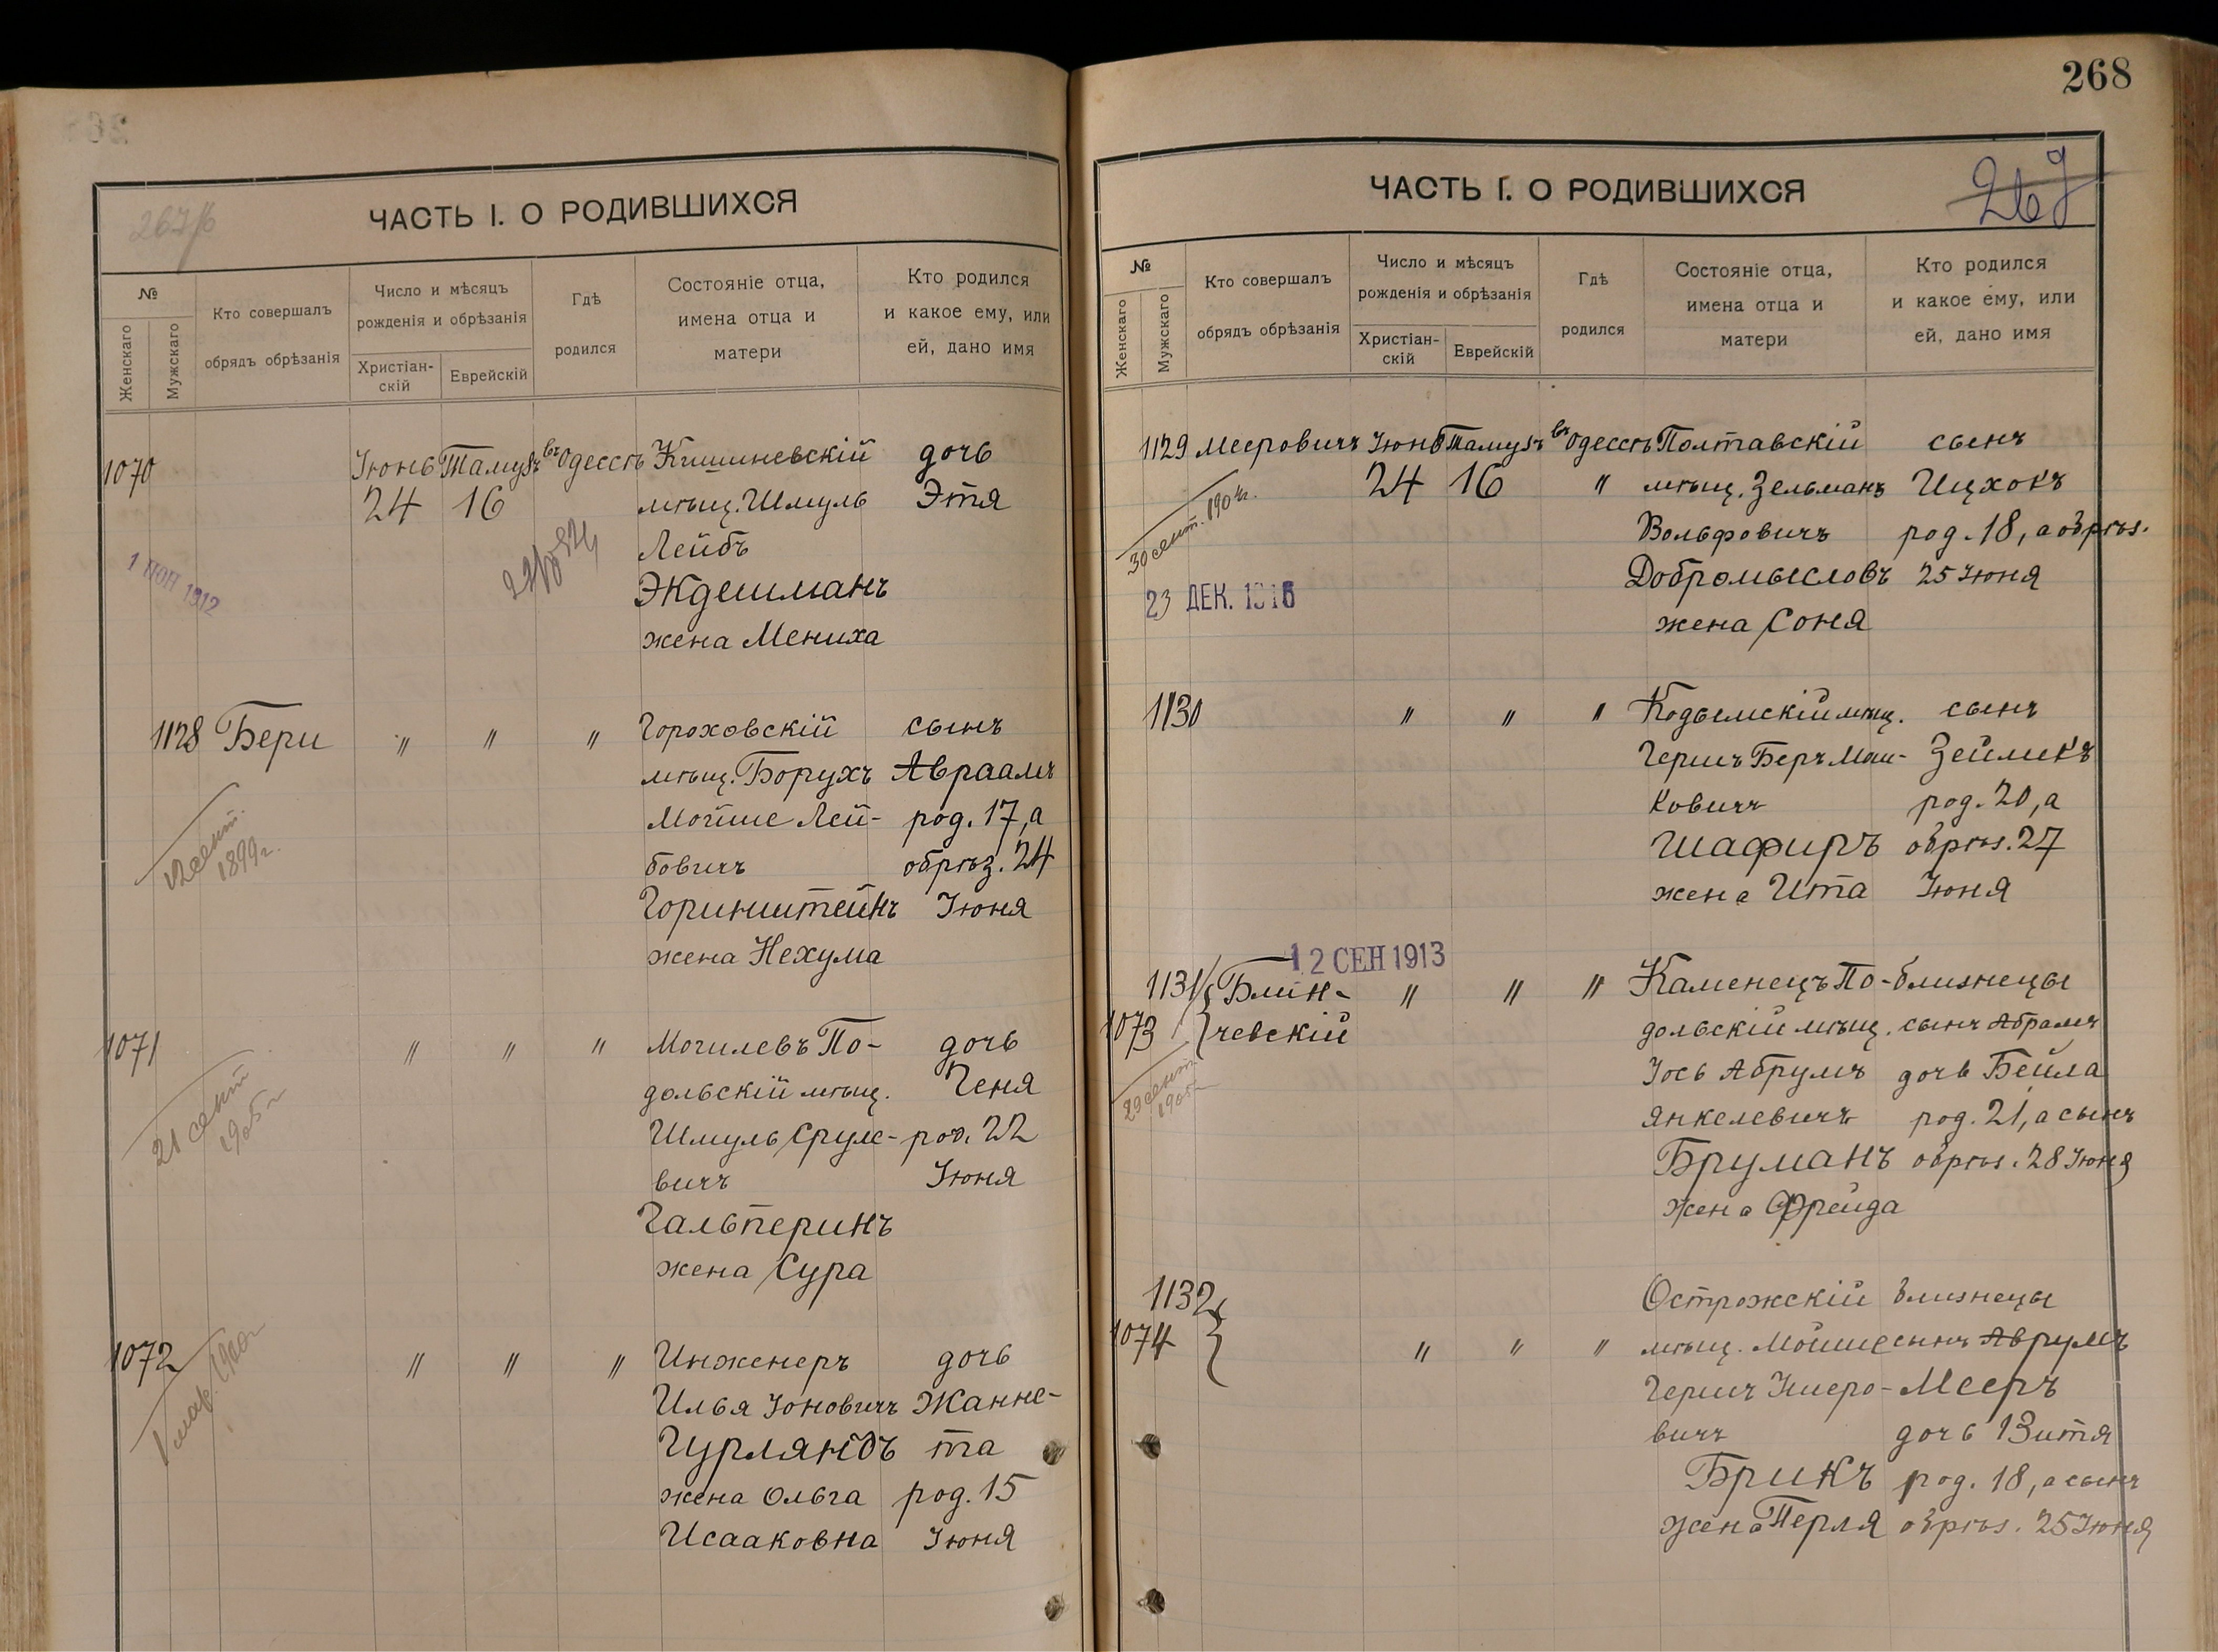 268
ЧАСТЬ I. О РОДИВШИХСЯ
№
Женскаго
Мужскаго
Кто совершалъ
обрядъ обрѣзанія
Число и мѣсяцъ
рожденія и обрѣзанія
Христіан-
скій
Еврейскій
Гдѣ
родился
Состояніе отца,
имена отца и
матери
Кто родился
и какое ему, или
ей, дано имя
1070 Іюнь Тамузъ въ Одессѣ Кишиневскій дочь
24 16 мѣщ. Шмуль Этя
Лейбъ
Эйдешманъ
жена Мениха
1 ІЮЛ 1912
1128 Бери " " " Гороховскій сынъ
мѣщ. Борухъ Авраамъ
Мойше Лей- род. 17, а
бовичъ обрѣз. 24
Горинштейнъ Іюня
жена Нехума
12 сент.
1899 г.
1071 " " " Могилевъ По- дочь
дольскій мѣщ. Геня
Шмуль Сруле- род. 22
вичъ Іюня
Гальперинъ
жена Сура
21 сент
1905 г
1072 " " " Инженеръ дочь
Илья Іоновичъ Жанне-
Гурляндъ та
жена Ольга род. 15
Исааковна Іюня
ЧАСТЬ I. О РОДИВШИХСЯ
267
№
Женскаго
Мужскаго
Кто совершалъ
обрядъ обрѣзанія
Число и мѣсяцъ
рожденія и обрѣзанія
Христіан-
скій
Еврейскій
Гдѣ
родился
Состояніе отца,
имена отца и
матери
Кто родился
и какое ему, или
ей, дано имя
1129 Мееровичъ Іюнь Тамузъ въ Одессѣ Полтавскій сынъ
24 16 " мѣщ. Зельманъ Ицхокъ
Вольфовичъ род. 18, а обрѣз.
Добромысловъ 25 Іюня
жена Соня
30 сент. 1904 г.
23 ДЕК. 1916
1130 " " " Кодымскій мѣщ. сынъ
Гершъ Беръ Мош- Зейликъ
ковичъ род. 20, а
Шафиръ обрѣз. 27
жена Ита Іюня
12 СЕН 1913
1131 Блин- " " " Каменецъ По- близнецы
1073 чевскій дольскій мѣщ. сынъ Абрамъ
Іось Абрумъ дочь Бейла
Янкелевичъ род. 21, а сынъ
Бруманъ обрѣз. 28 Іюня
жена Фрейда
29 сент
1132 Острожскій близнецы
1074 " " " мѣщ. Мойше сынъ Аврумъ
Гершъ Ишеро- Мееръ
вичъ дочь Зитя
Брикъ род. 18, а сынъ
жена Перля обрѣз. 25 Іюня